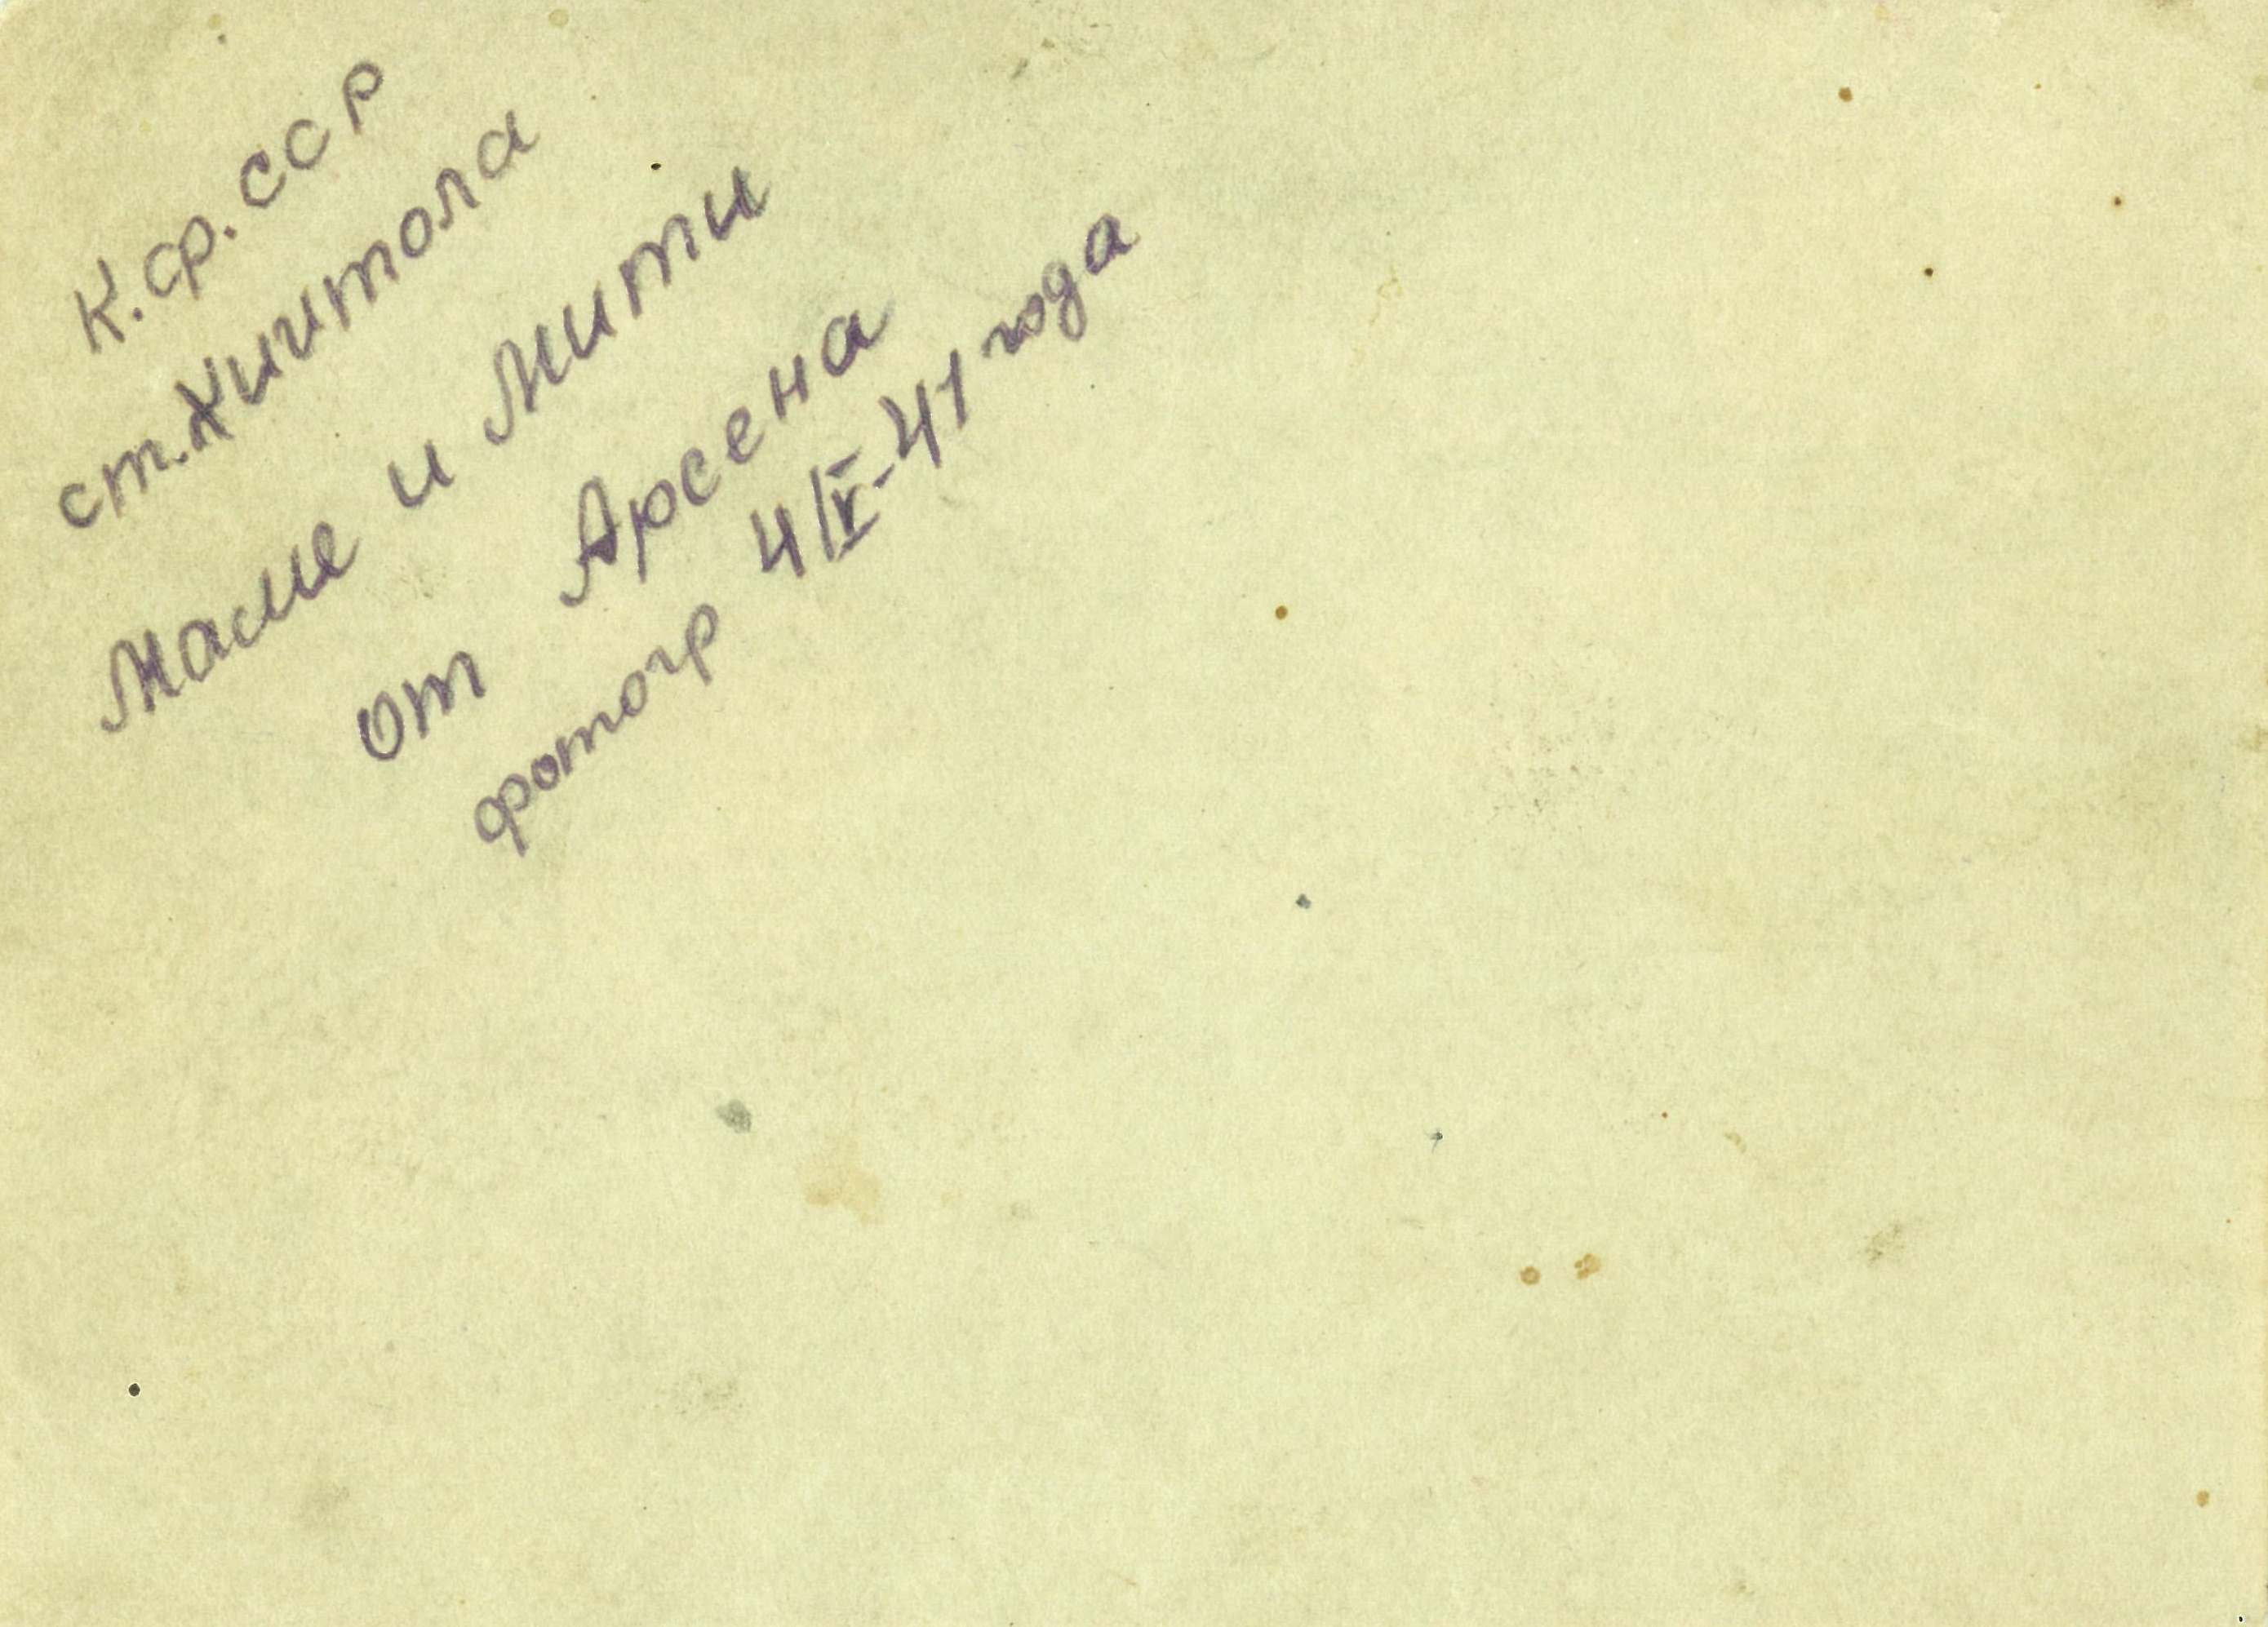 К.ф.ССР
ст.Хиитола
Маме и Мити
от Арсена
фотогр 4/IV-41 года